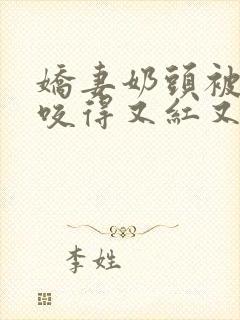 嬌妻奶頭被
咬得又紅又
李姓